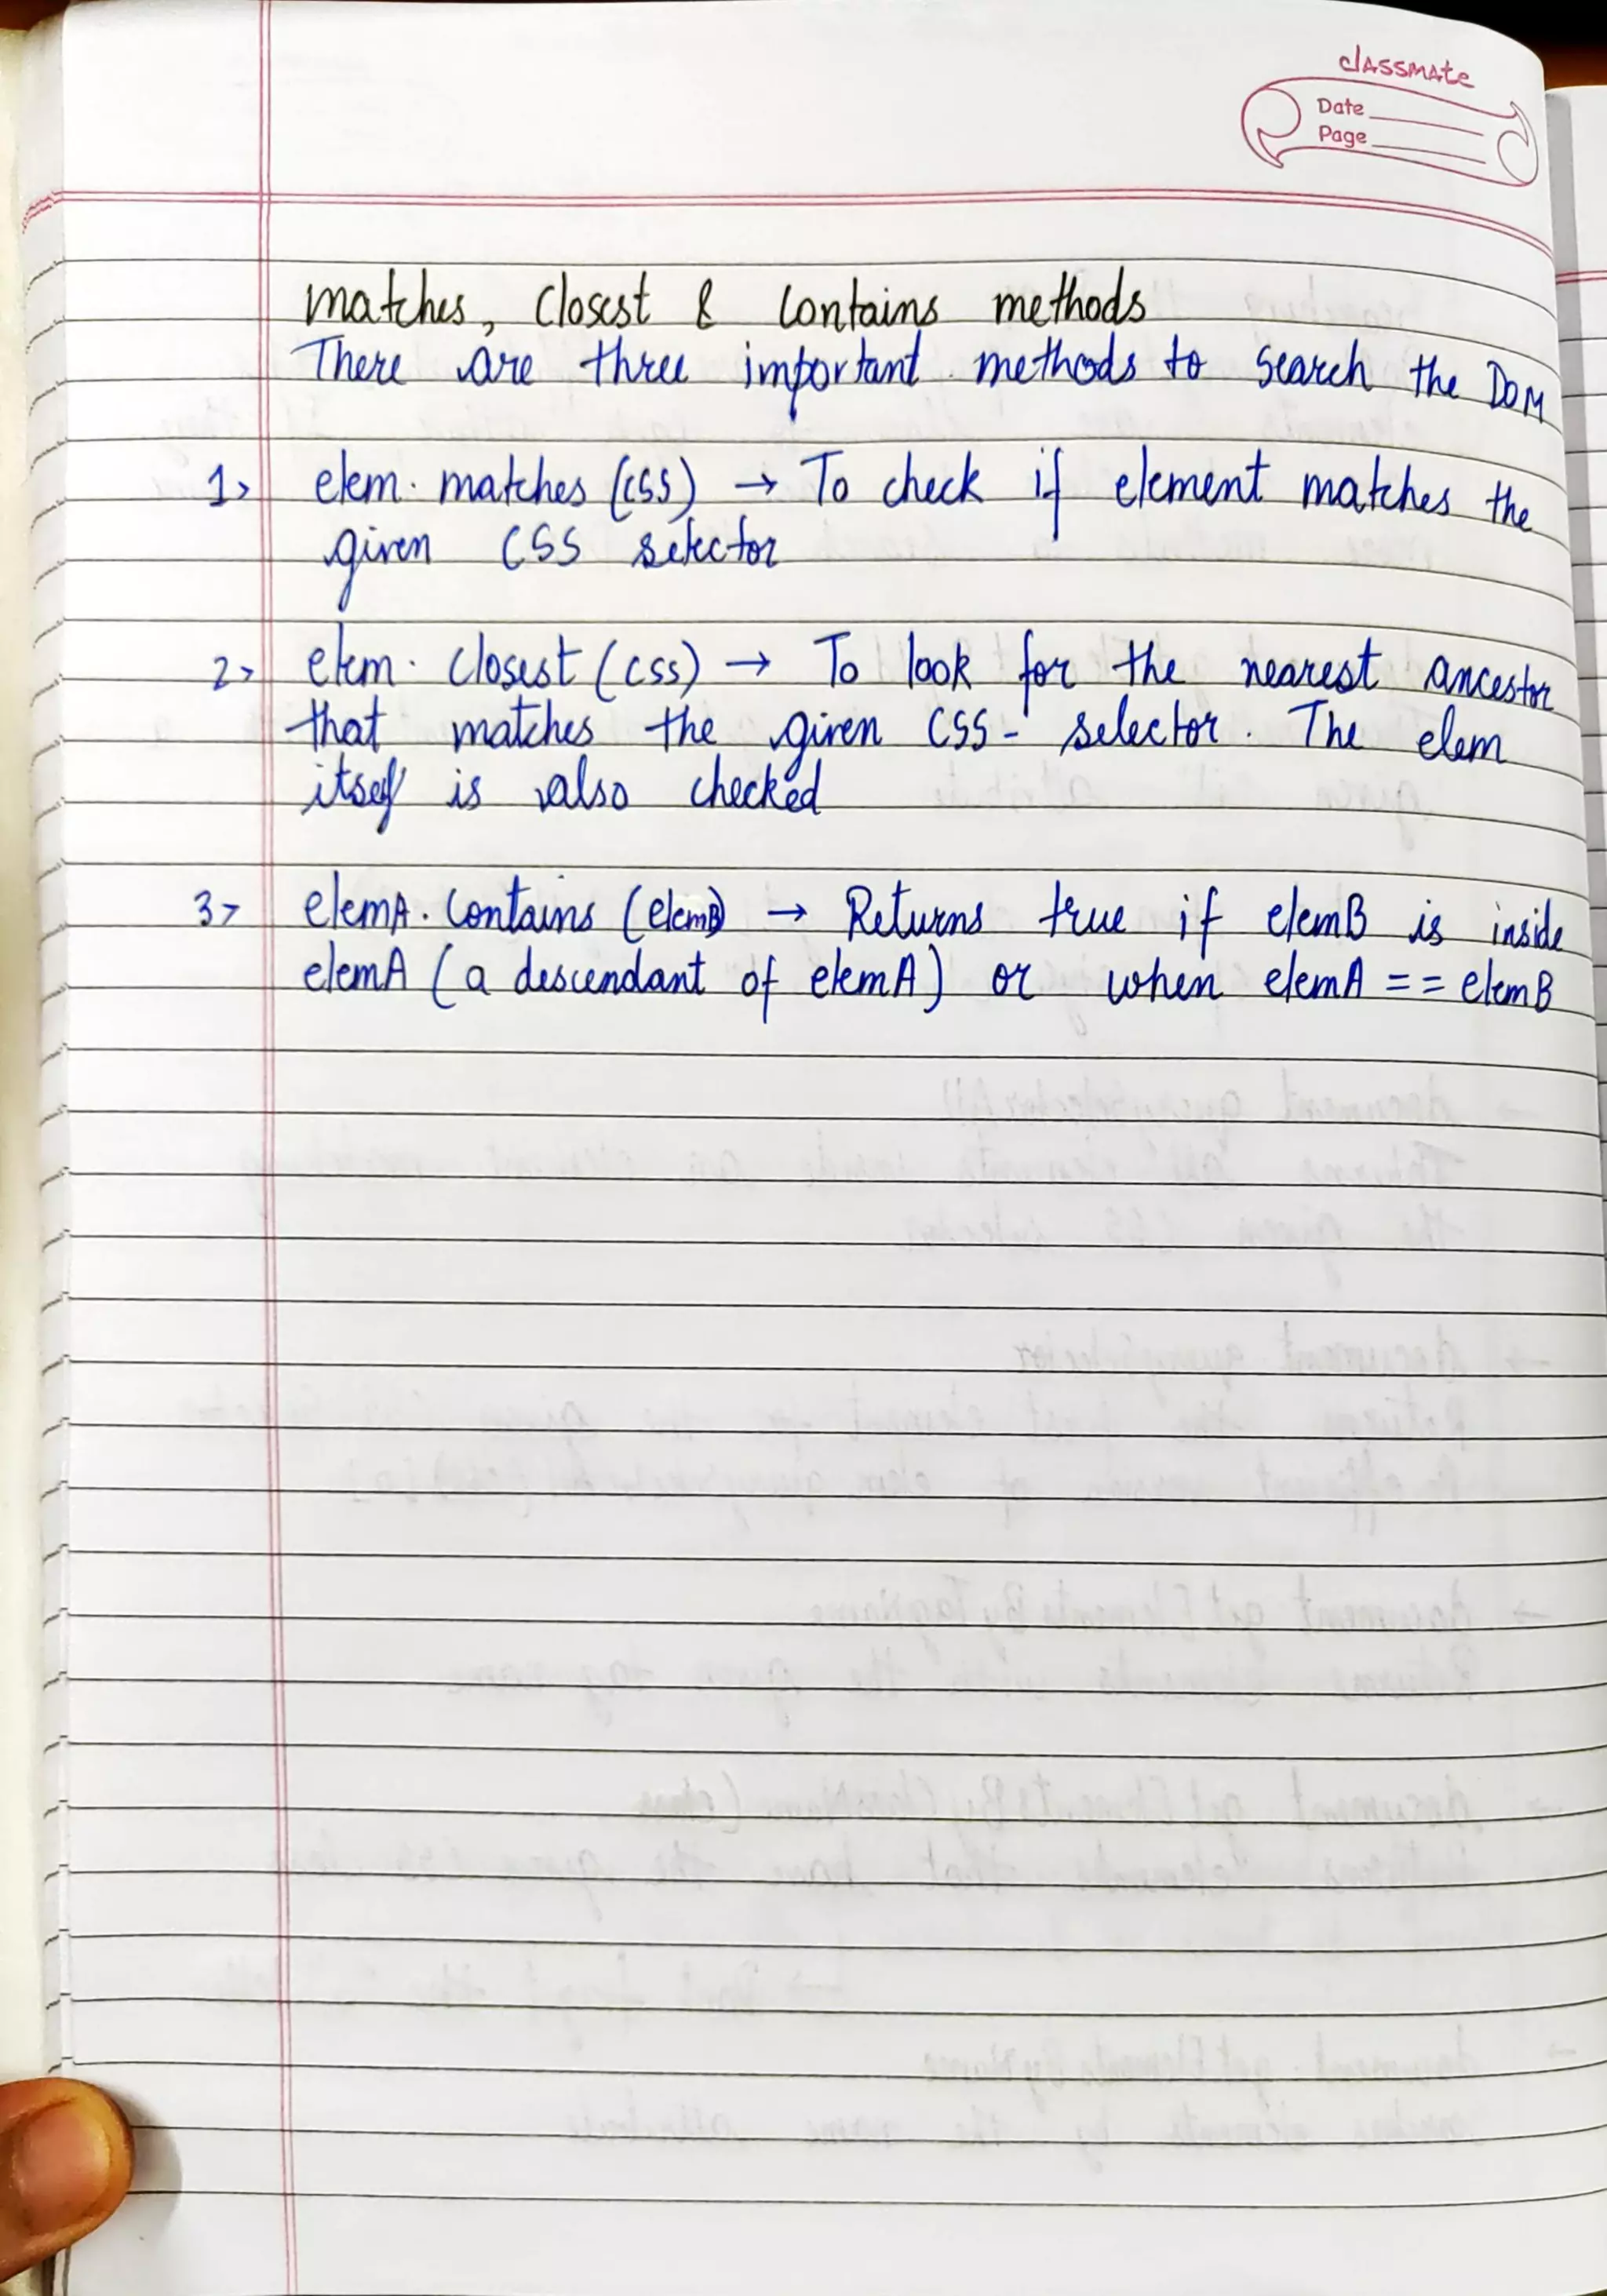 classmate
Date
Page
matches, closest & contains methods
There are three important methods to search the DOM
1> elem. matches (CSS) → To check if element matches the
given CSS selector
2> elem. closest (CSS) → To look for the nearest ancestor
that matches the given CSS - selector. The elem
itself is also checked
3> elemA. contains (elemB) → Returns true if elemB is inside
elemA (a descendant of elemA) or when elemA == elemB